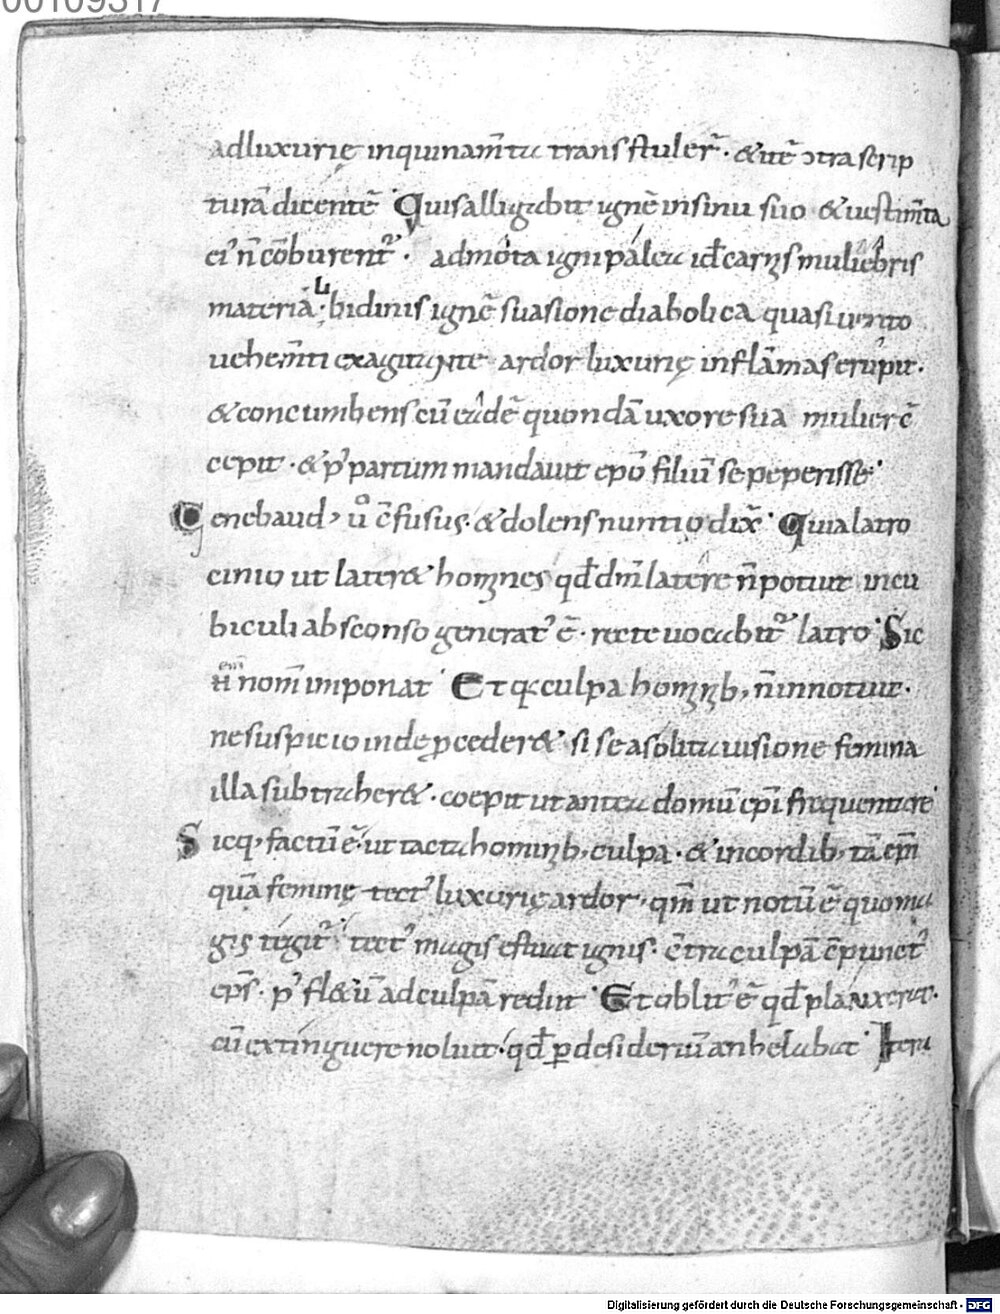 00109317
adluxurię inquinam̄ta transtuler̄. & ut ē ɔtra scrip
turā dicentē Quis alligabit ignē in sinu suo & uestim̄ta
ei' n̄ cōburent᷑. admota igni palea id ē carnis muliebris
materia. Libidinis ignē suasione diabolica quasi uento
uehem̄ti exagitante ardor luxurię in flāmas erupit.
& concumbens cū eadē quondā uxore sua mulier c̄
cepit. & p' partum mandauit ep̄o filiū se peperisse
Genebaud, u͛o c̄fusus. & dolens nuntio dix̄ Quia latro
cinio ut later& homines qđ dm̄ latere n̄ potuit in cu
biculi absconso generat' ē. recte uocabit᷑ latro Sic
em̄ nom̄ imponat Et q; culpa hominib, n̄ innotuit.
ne suspicio inde ꝓceder& si se a solita uisione femina
illa subtraher&. coepit ut antea domū ep̄i frequentare
Sicq, factū ē. ut tacta hominib, culpa. & in cordib, tā ep̄i
quā feminę tect' luxurię ardor, qm̄ ut notū ē quo ma
gis tegit᷑ tect' magis estuat ignis. c̄tra culpā c̄punct'
ep̄s. p' fl&ū ad culpā rediit Et oblit' ē qđ planxerat.
cū extinguere noluit. qđ ꝑ desideriū anhelabat Iteru
Digitalisierung gefördert durch die Deutsche Forschungsgemeinschaft - DFG